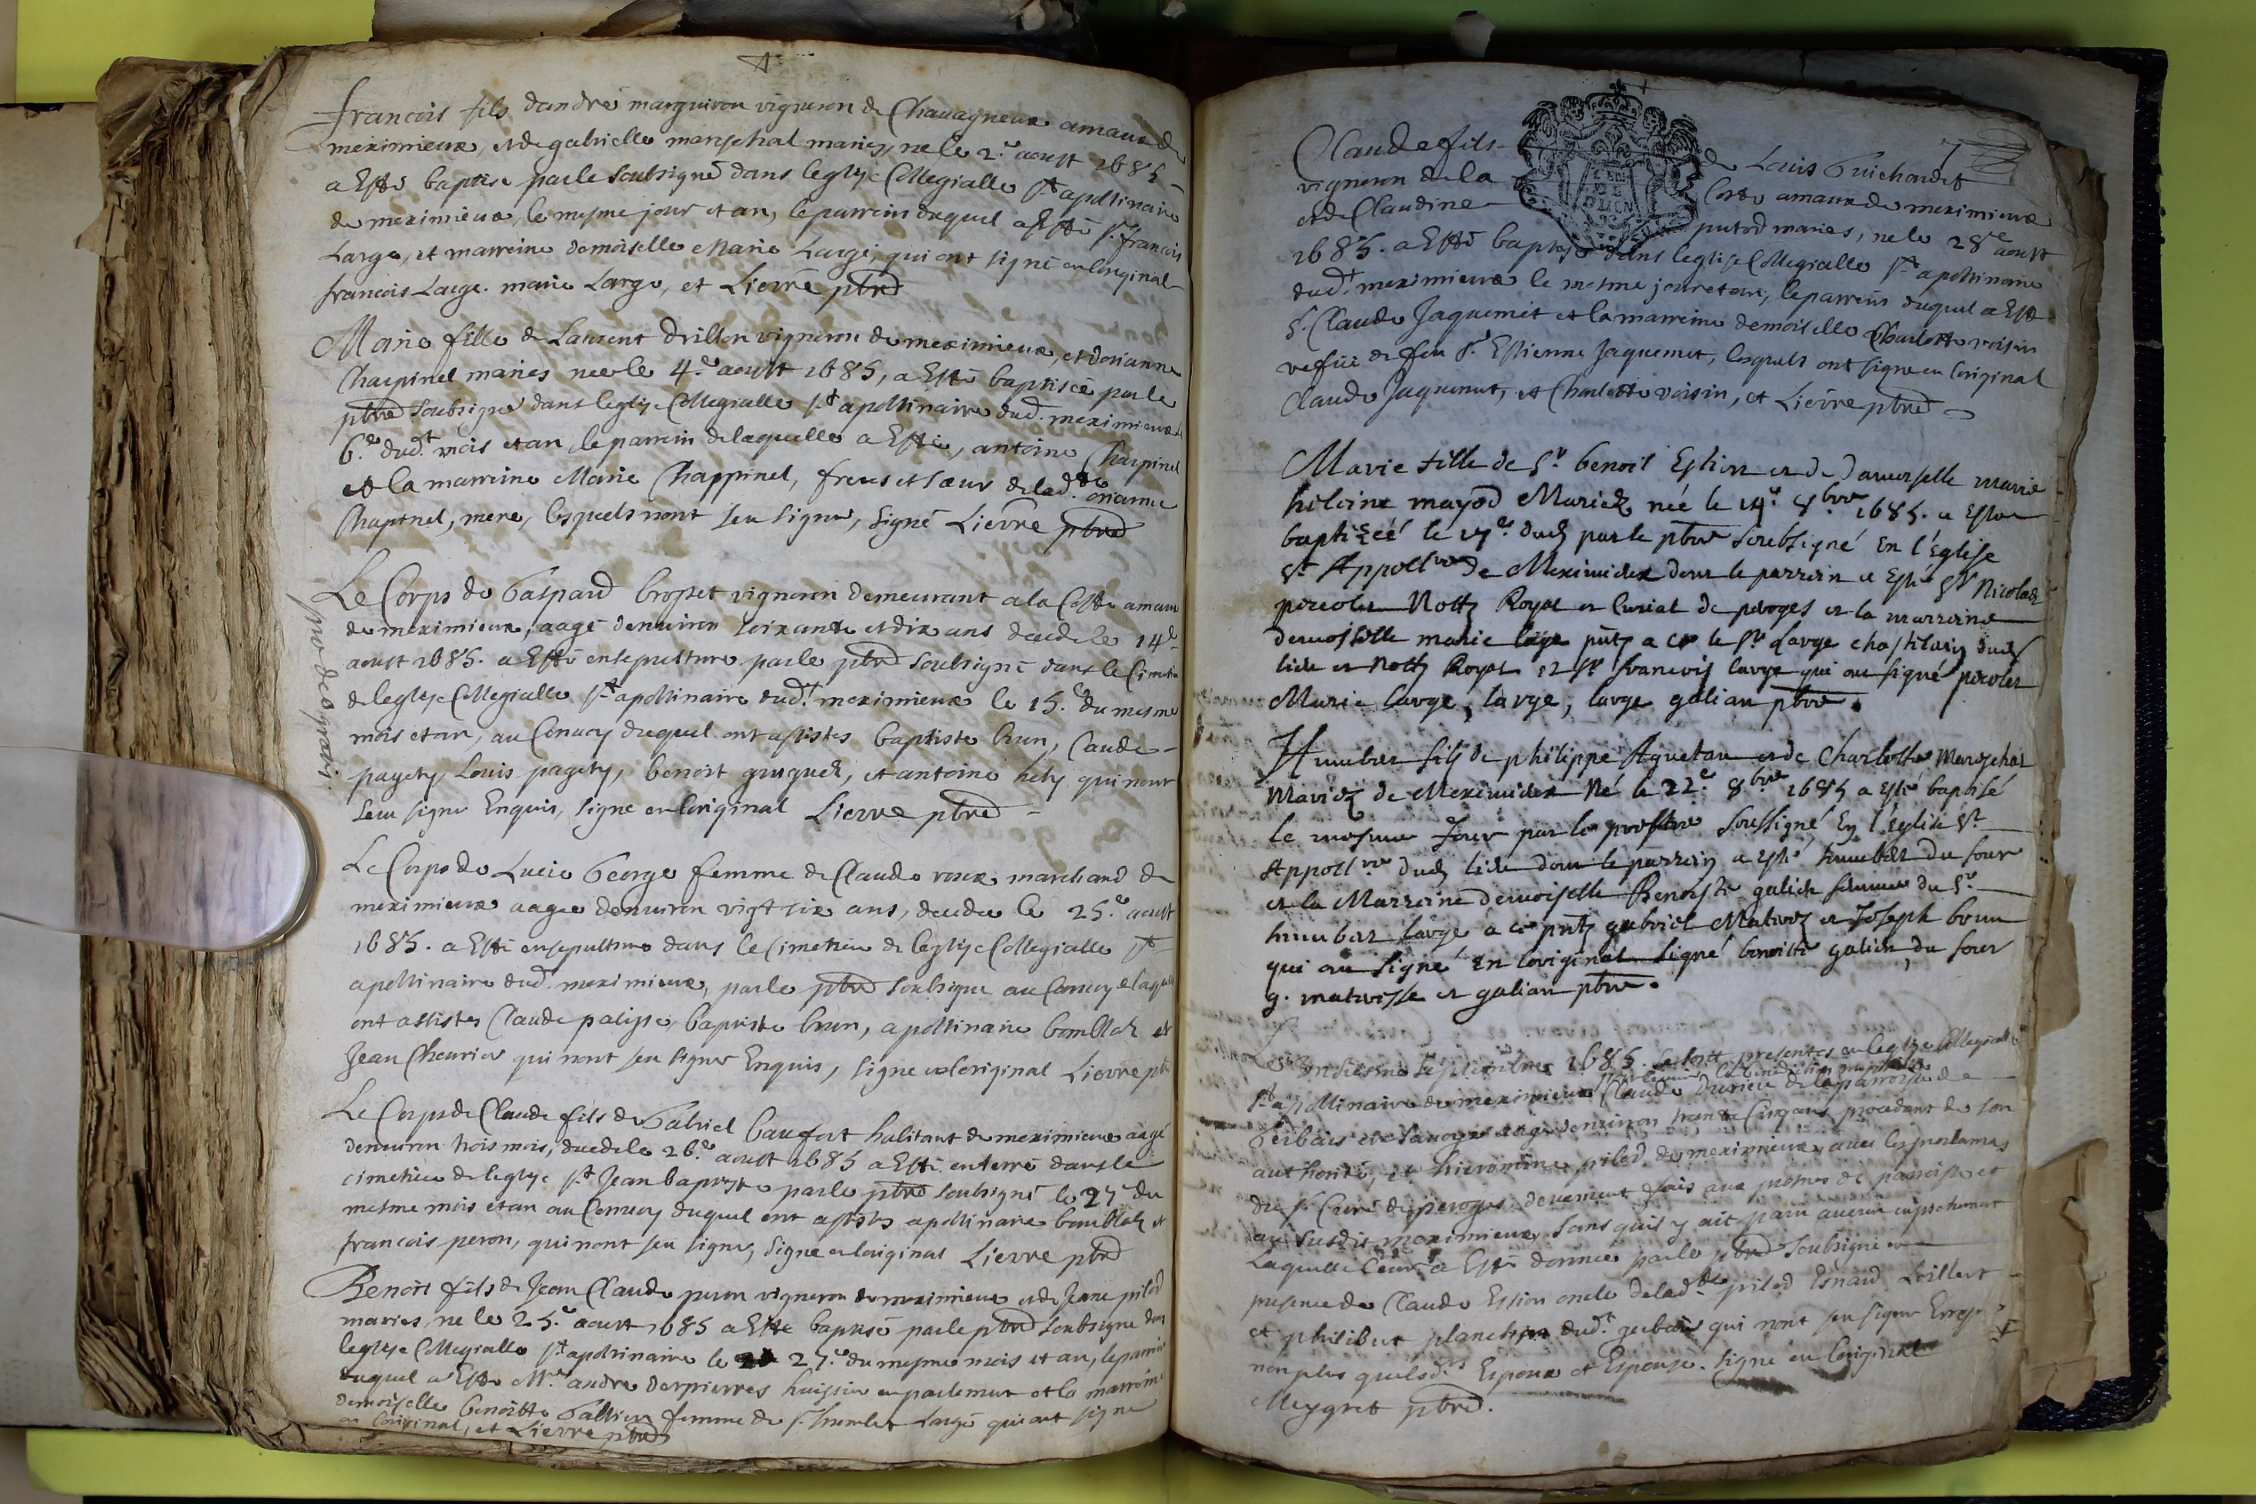 francois fils dandré marguiron vigneron de Chauagneux amaux de
meximieux, et de gabrielle mareschal maries, ne le 2.e aoust 1685
a Esté baptise par le soubsigné dans leglise Collegialle st apollinaire
de meximieux, le mesme jour et an, le parrein duquel a Esté sr. francois
Large, et marreine demoiselle Marie Large, qui ont signé en loriginal
francois Large. marie Large, et Lievre pbre
Marie fille de Laurent drillon vigneron de meximieux, et dorianne
Charpinel maries nee le 4.e aoust 1685, a Esté baptisée par le
pbre soubsigné dans leglise Collegialle st apollinaire dud. meximieux
6.e dudt. mois et an, le parrein de laquelle a Esté, antoine Charpinel
et la marreine Marie Chappinel, frere et sœur de lad.te orianne
Chapinel, mere, lesquels nont seu signer, signé Lievre pbre
Le Corps de Gaspard brosset vigneron demeurant a la Coste amaux
de meximieux, aagé denuiron soixante et dix ans decedé le 14.e
aoust 1685. a Esté ensepulturé par le pbre soubsigné dans le Cimetiere
de leglise Collegialle st apollinaire dudt. meximieux le 15.e du mesme
mois et an, au Conuoy duquel ont assistes baptiste brun, Claude
pagety Louis pagety, benoit gruguet, et antoine hety qui nont
seu signer Enquis, signé en loriginal Lievre pbre
Le Corps de Lucie George femme de Claude roux marchand de
meximieux aagee denuiron vigt six ans, decedee le 25.e aoust
1685. a Esté ensepulturee dans le Cimetiere de leglise Collegialle st
apollinaire dud. meximieux, par le pbre soubsigné au Conuoy de laquelle
ont assistes Claude palisse, baptiste brun, apollinaire bomblok et
Jean Cheurier qui nont seu signer Enquis, signé en loriginal Lievre pbre
Le Corps de Claude fils de Gabriel baufort habitant de meximieux aagé
denuiron trois mois, decedé le 26.e aoust 1685 a Esté enterré dans le
cimetiere de leglise st Jean baptiste par le pbre soubsigné le 27.e du
mesme mois et an au Conuoy duquel ont assistes apollinaire bomblok et
francois peron, qui nont seu signer, signé en loriginal Lievre pbre
Benoit fils de Jean Claude peron vigneron de meximieux et de Jeane pilod
maries, ne le 25.e aoust 1685 a Esté baptisé par le pbre soubsigné dans
leglise Collegialle st apollinaire le 27.e du mesme mois et an, le parrein
duquel a Esté Mre andre despierres huissier en parlement et la marreine
demoiselle benoitte Gallien femme de sr. humbert Large qui ont signé
en loriginal, et Lievre pbre
Claude fils de Louis Guichardet
vigneron de la Coste amaux de meximieux
et de Claudine putod maries, ne le 28.e aoust
1685. a Esté baptisé dans leglise Collegialle st apollinaire
dudt. meximieux le mesme jour et an, le parrein duquel a Esté
sr. Claude Jaquemet et la marreine demoiselle Charlotte voisin
vefue de feu sr. Estienne Jaquemet, lesquels ont signé en loriginal
Claude Jaquemet, et Charlotte voisin, et Lievre pbre
Marie fille de sr. benoit Estion et de damoiselle marie
heleine mayod Mariez née le 14.e 8bre 1685. a Esté
baptizéé le 17.e dud par le pbre soubsigné En l'Eglise
st Appollre de Meximieux dont le parrein a Esté sr Nicolas
percolet Nottr Royal et Curial de peroges et la marreine
demoiselle marie large puts a ce le sr large chastelain dud
lieu et Nottr Royal et sr francois large qui ont signé percolet
Marie large, large, large galian pbre.
Humbert fils de philippe Aguetan et de Charlotte mareschal
Mariez de Meximieux Né le 22.e 8bre 1685 a esté baptisé
le mesme Jour par le presbtre soussigné En l'Eglise st
Appollre dud lieu dont le parrein a esté humbert du four
et la Marreine demoiselle Benoiste galien femme du sr
humbert large a ce puts gabriel Matras et Joseph brun
qui ont signé En loriginal signé benoiste galien, du four
g. matrasse et galian pbre.
septiembre 1685. se sont presentes en leglise Collegialle
st apollinaire de meximieux Claude de la parroisse de
Gerbais en Sauoye aagé denuiron trante Cinq ans procedant de son
authorité, et hieronime pilod de meximieux, auec les proclamas
du sr. Curé de peroges deuement fais aux prosnes de parroisse et
au susdit meximieux, sans quil y ait paru aucun enpechement
Laquelle leur a Esté donnee par le pbre soubsigné en
presence de Claude Estion oncle de lad.te pilod Esnard Loillier
et philibert planchon dudt. gerbais qui nont seu signer Enquis
non plus que lesds Espoux et Espouse. Signé en loriginal
Meygret pbre.